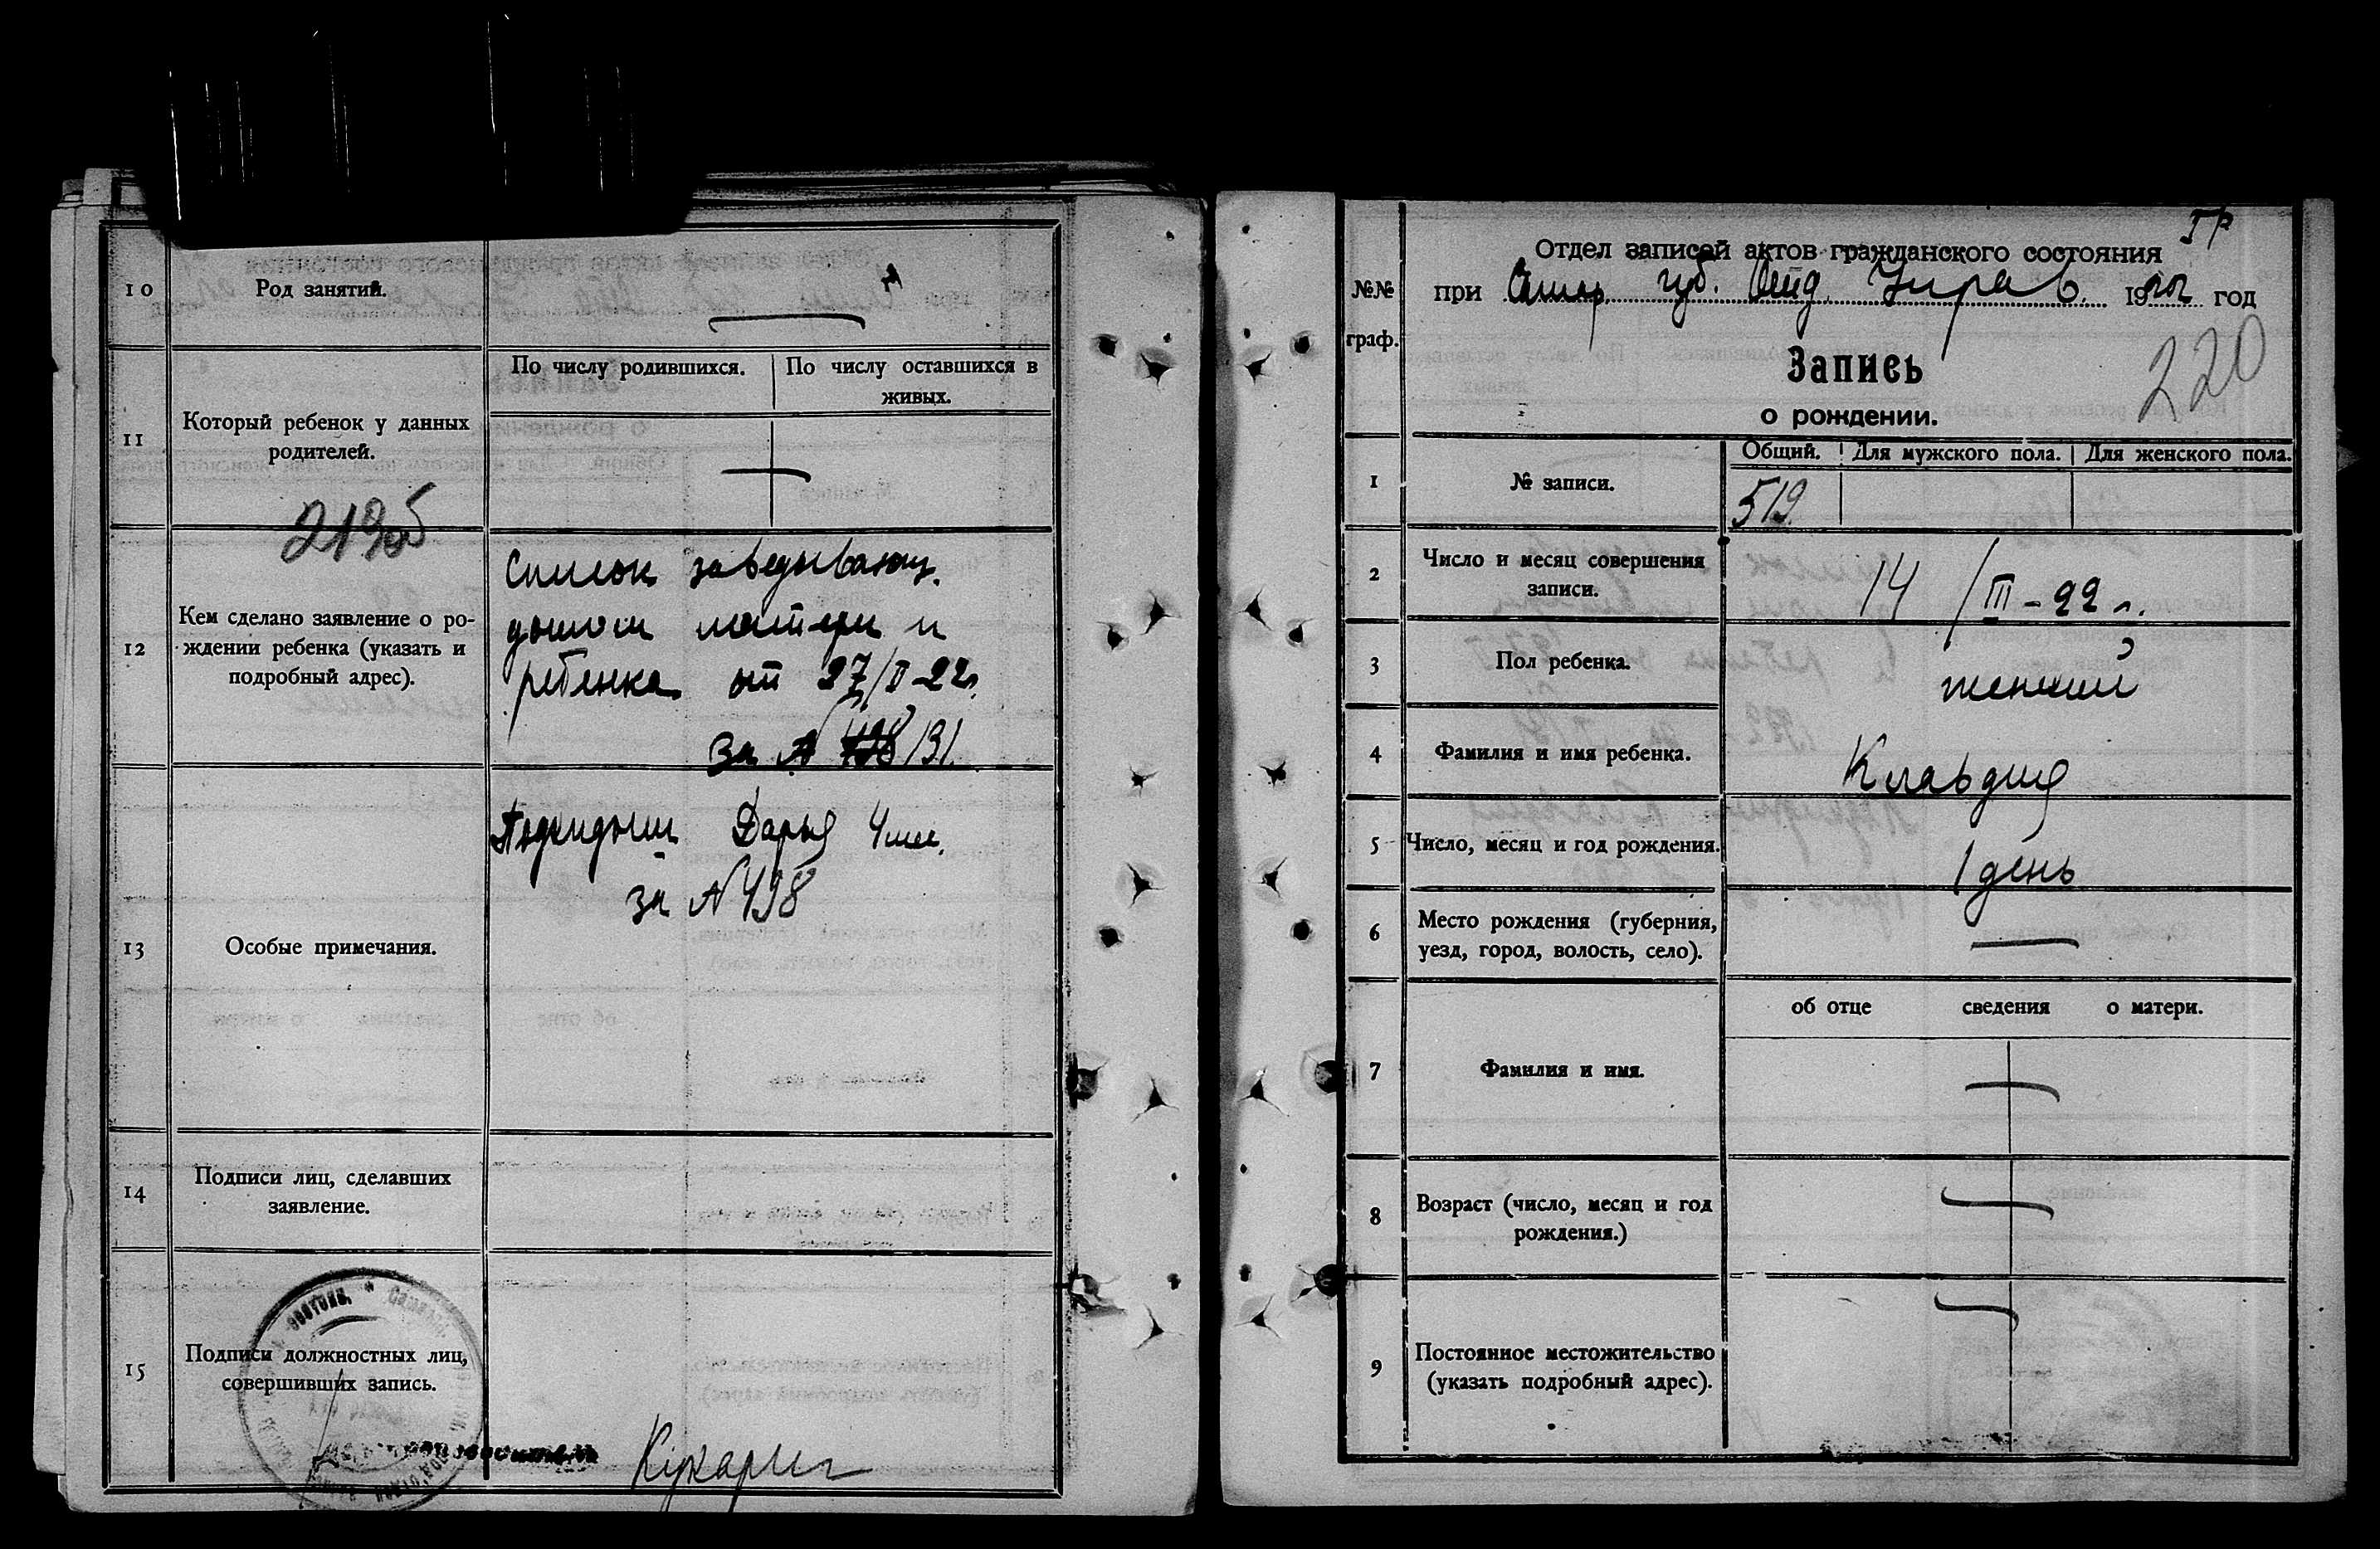 10
Род занятий.
11
Который ребенок у данных
родителей.
По числу родившихся.
По числу оставшихся в
живых.
219об
12
Кем сделано заявление о ро-
ждении ребенка (указать и
подробный адрес).
Список заведывающ.
домом матери и
ребенка от 27/II-22г.
за № 498 131.
13
Особые примечания.
Подкидыш Дарья 4 мес.
за № 498
14
Подписи лиц, сделавших
заявление.
15
Подписи должностных лиц,
совершивших запись.
№№
граф.
Отдел записей актов гражданского состояния
при губ. Отд. Управ. 1922 год
220
Запись
о рождении.
1
№ записи.
Общий.
Для мужского пола.
Для женского пола.
519.
2
Число и месяц совершения
записи.
14/III-22 г.
3
Пол ребенка.
женский
4
Фамилия и имя ребенка.
Клавдия
5
Число, месяц и год рождения.
1 день
6
Место рождения (губерния,
уезд, город, волость, село).
7
Фамилия и имя.
об отце сведения о матери.
8
Возраст (число, месяц и год
рождения.)
9
Постоянное местожительство
(указать подробный адрес).